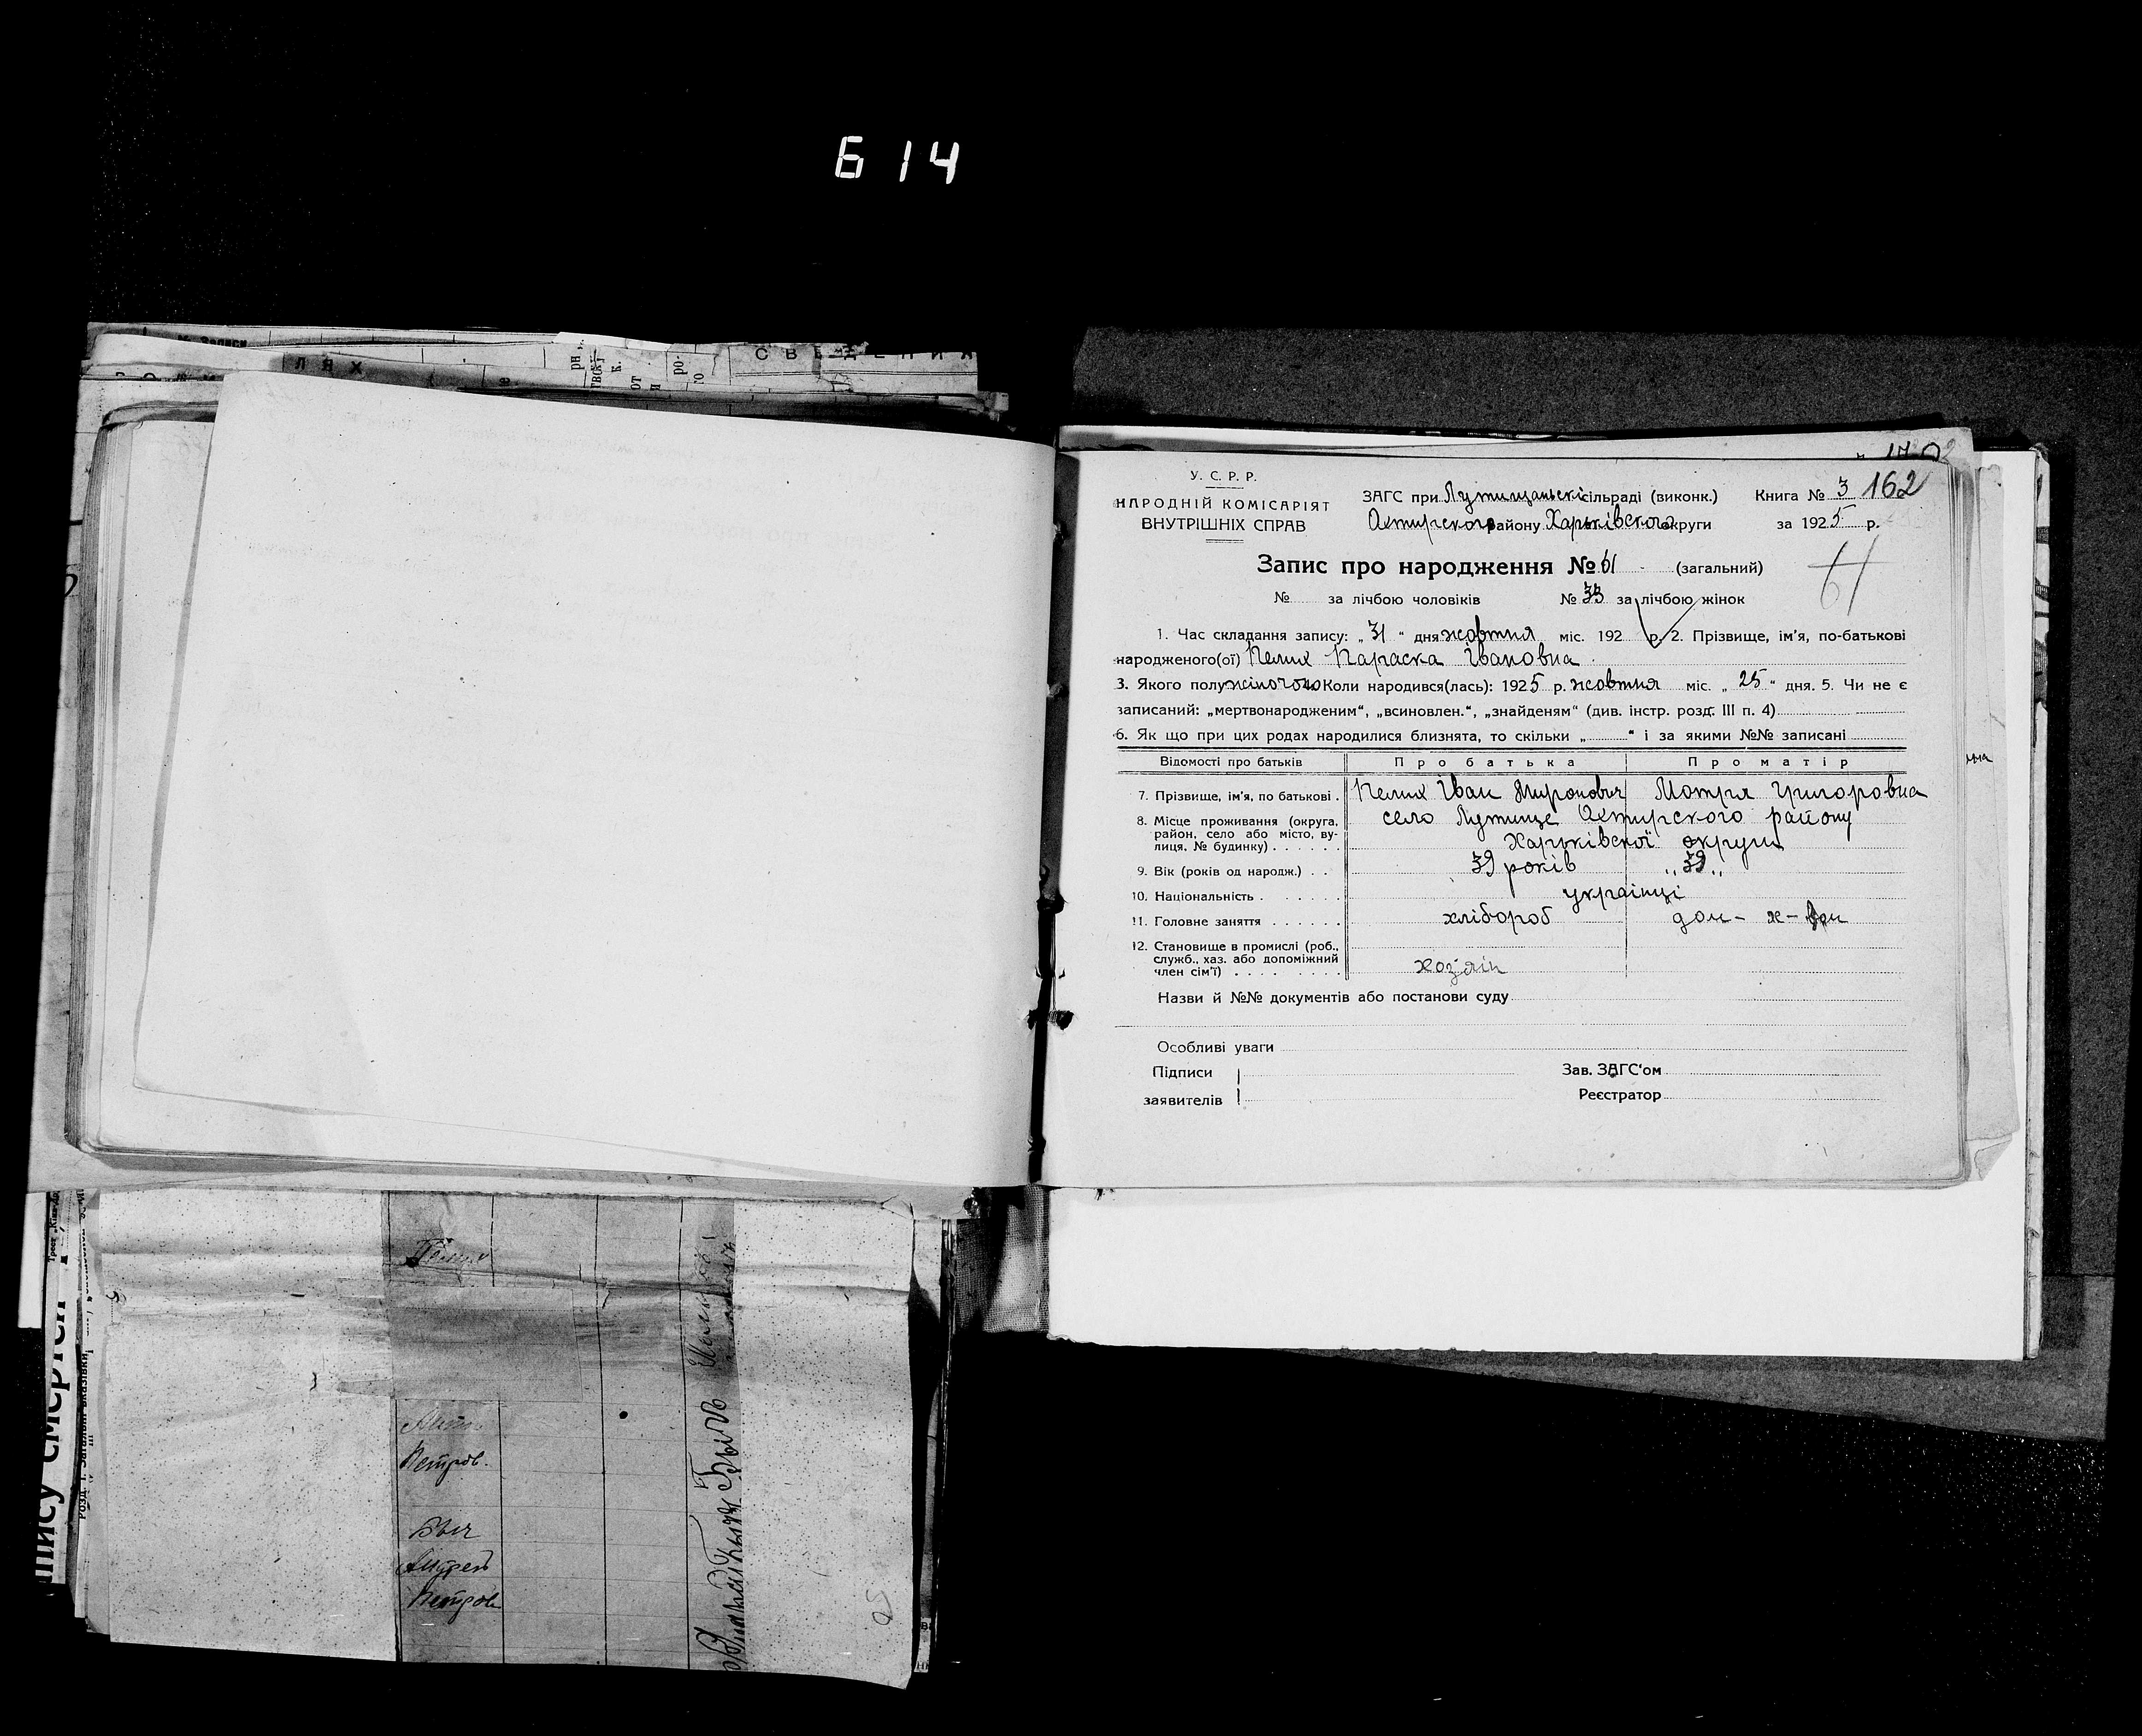 614
СВЕДЕНИЯ
162
У. С. Р. Р.
НАРОДНІЙ КОМІСАРІЯТ
ВНУТРІШНІХ СПРАВ
ЗАГС при Лутищанскі сільраді (виконк.) Книга № 3
Охтирского району Харьківского округи за 1925 р.
Запис про народження № 61 (загальний)
61
№ за лічбою чоловіків № 33 за лічбою жінок
1. Час складання запису: „31“ дня жовтня міс. 192 р. 2. Прізвище, ім'я, по-батькові
народженого(ої) Пелих Параска Івановна
3. Якого полу жіночого Коли народився(лась): 1925 р. жовтня міс. „25“ дня. 5. Чи не є
записаний: „мертвонародженим“, „всиновлен.“, „знайденям“ (див. інстр. розд. III п. 4)
6. Як що при цих родах народилися близнята, то скільки „ “ і за якими №№ записані
Відомості про батьків Про батька Про матір
7. Прізвище, ім'я, по батькові. Пелих Іван Миронович Мотря Григоровна
8. Місце проживання (округа, район, село або місто, вулиця, № будинку) село Лутище Охтирского району
Харьківскої округи
9. Вік (років од народж.) 39 років „39„
10. Національність українці
11. Головне заняття хлібороб дом-
12. Становище в промислі (роб., служб., хаз. або допоміжний член сім'ї) хозяін
Назви й №№ документів або постанови суду
Особливі уваги
Підписи
заявителів
Зав. ЗАГС'ом
Реєстратор
Петров.
Быч
Андрей
Петров